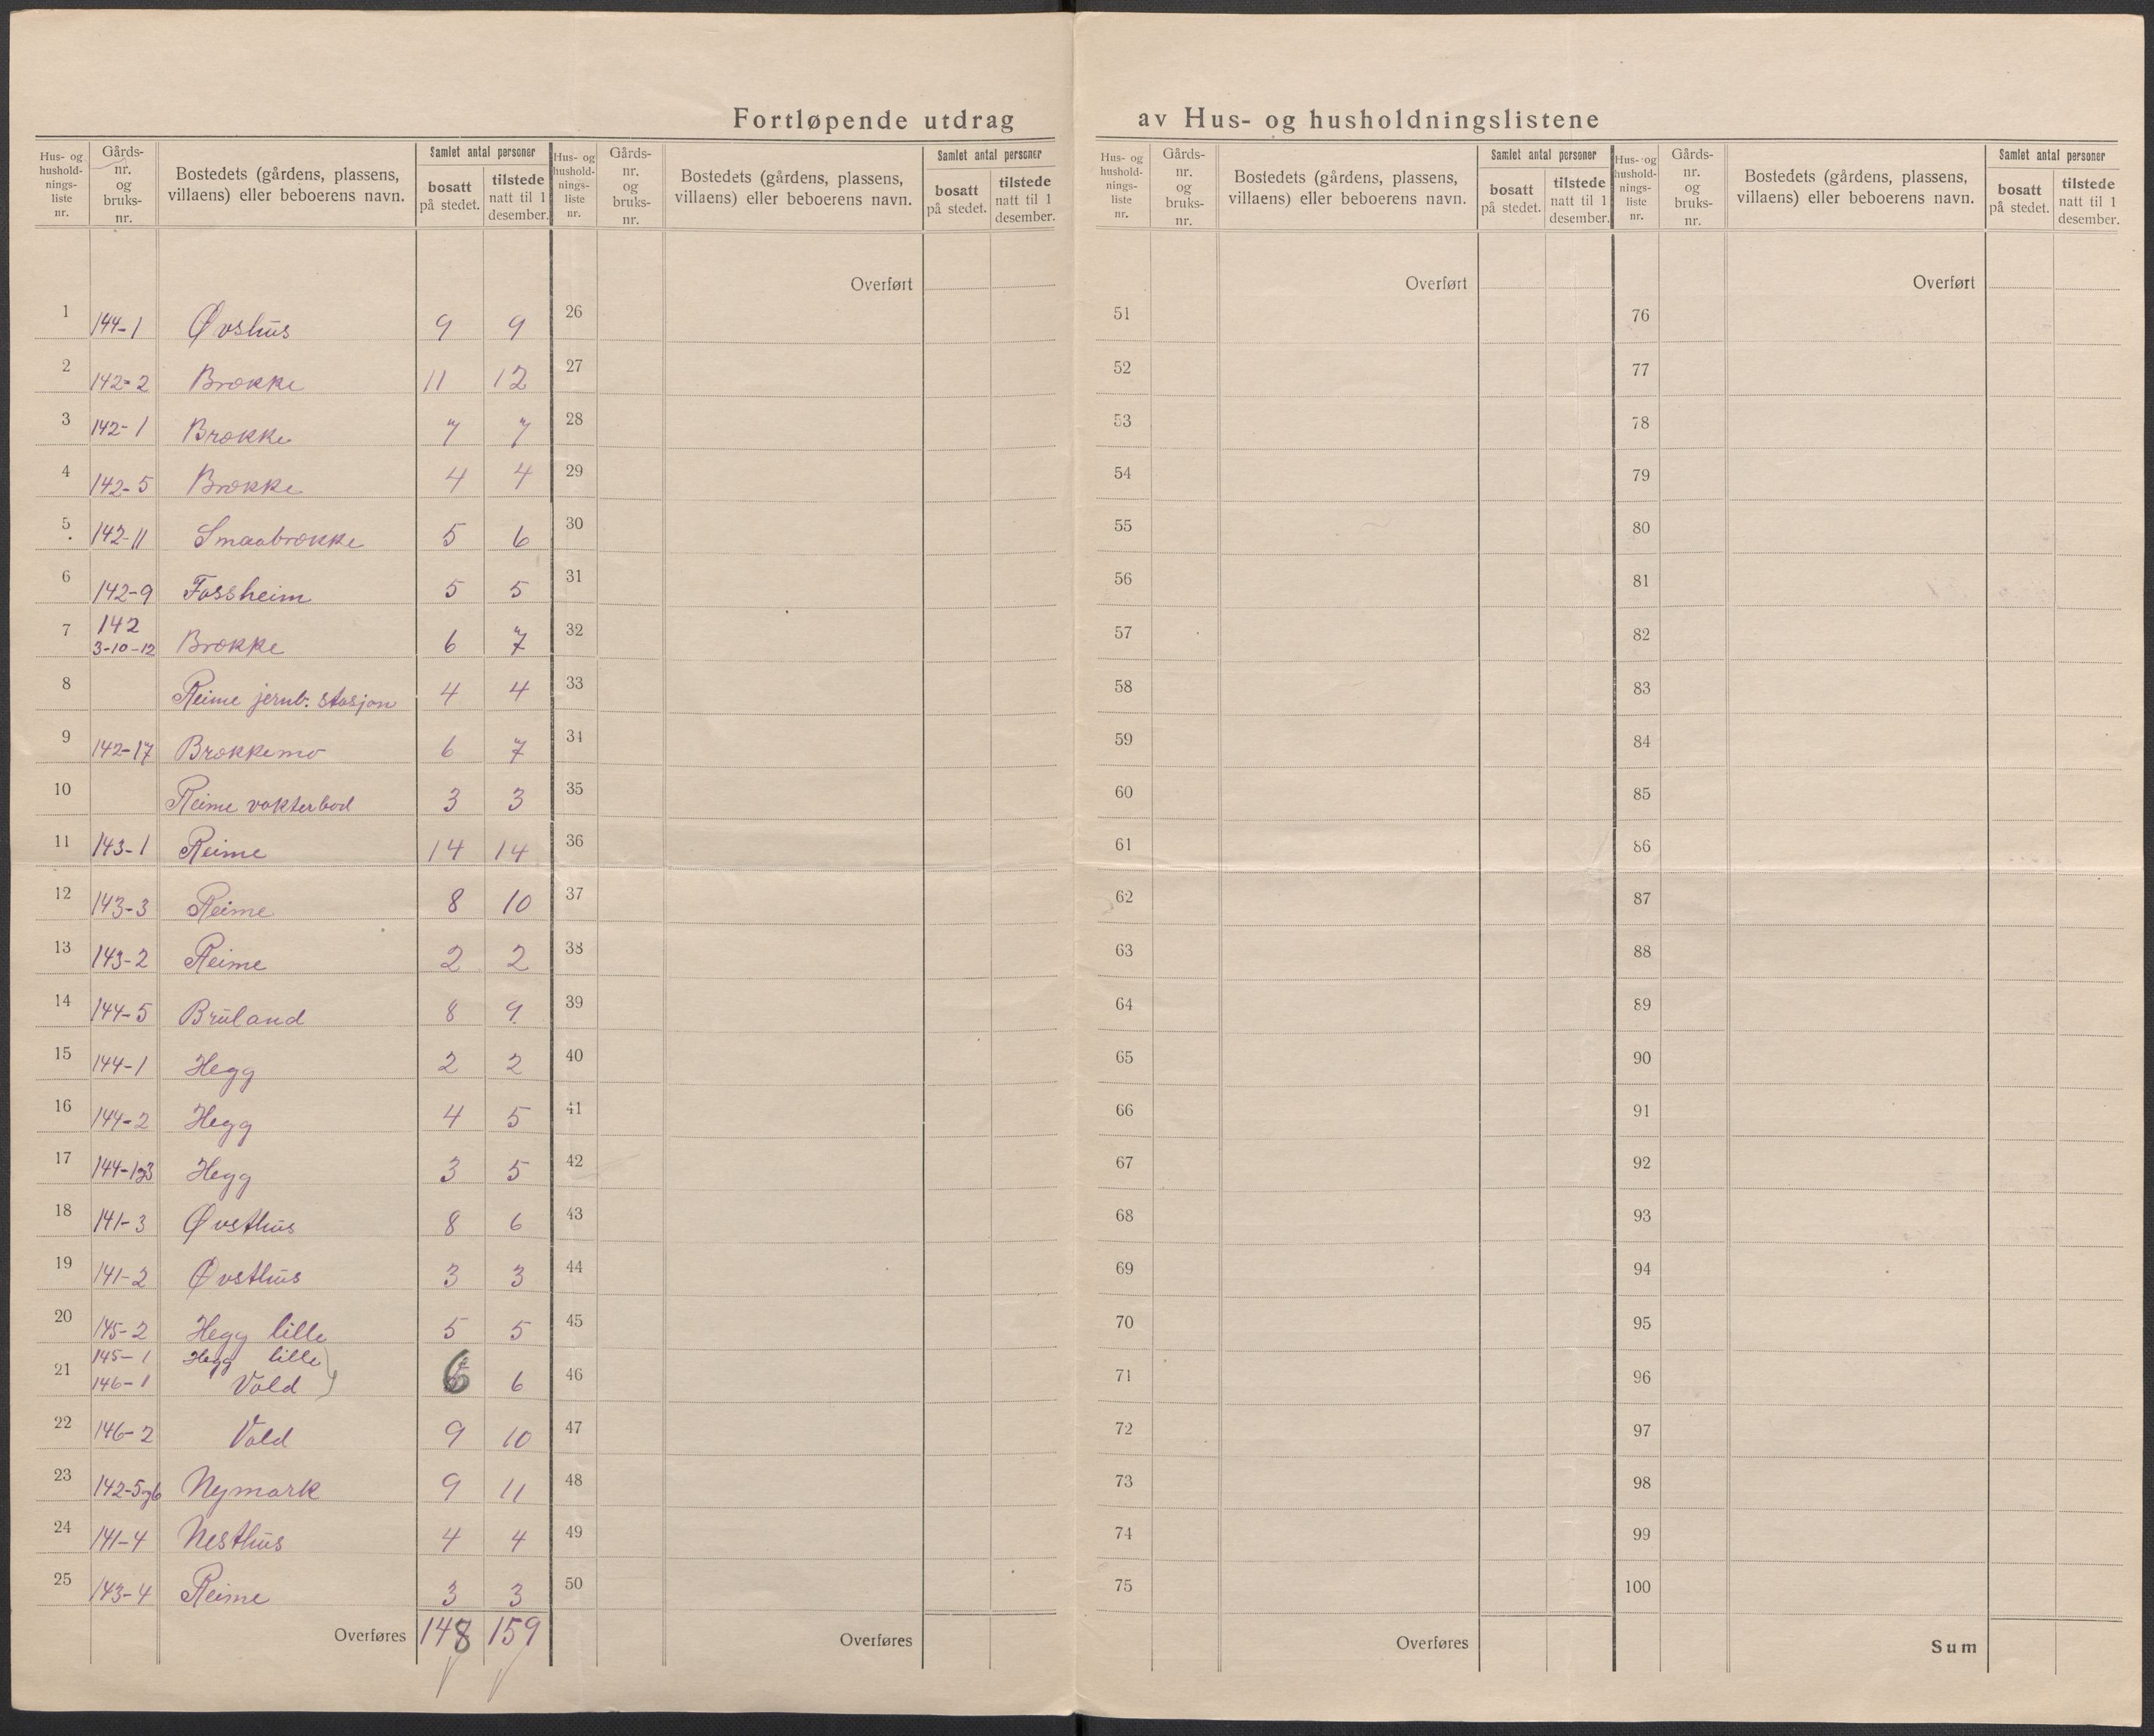 Fortløpende utdrag av Hus- og husholdningslistene
Hus- og husholdnings-liste nr. | Gårds-nr. og bruks-nr. | Bostedets (gårdens, plassens, villaens) eller beboerens navn. | Samlet antal personer | bosatt på stedet. | tilstede natt til 1 desember.
Hus- og husholdnings-liste nr. | Gårds-nr. og bruks-nr. | Bostedets (gårdens, plassens, villaens) eller beboerens navn. | Samlet antal personer | bosatt på stedet. | tilstede natt til 1 desember.
Hus- og husholdnings-liste nr. | Gårds-nr. og bruks-nr. | Bostedets (gårdens, plassens, villaens) eller beboerens navn. | Samlet antal personer | bosatt på stedet. | tilstede natt til 1 desember.
Hus- og husholdnings-liste nr. | Gårds-nr. og bruks-nr. | Bostedets (gårdens, plassens, villaens) eller beboerens navn. | Samlet antal personer | bosatt på stedet. | tilstede natt til 1 desember.
Overført Overført Overført
1 144-1 Øvshus 9 9 26 51 76
2 142-2 Brøkke 11 12 27 52 77
3 142-1 Brøkke 7 7 28 53 78
4 142-5 Brøkke 4 4 29 54 79
5 142-11 Smaabrøkke 5 6 30 55 80
6 142-9 Fossheim 5 5 31 56 81
7 142 3-10-12 Brøkke 6 7 32 57 82
8 Reime jernb. stasjon 4 4 33 58 83
9 142-17 Brøkkemo 6 7 34 59 84
10 Reime vokterbod 3 3 35 60 85
11 143-1 Reime 14 14 36 61 86
12 143-3 Reime 8 10 37 62 87
13 143-2 Reime 2 2 38 63 88
14 144-5 Bruland 8 9 39 64 89
15 144-1 Hegg 2 2 40 65 90
16 144-2 Hegg 4 5 41 66 91
17 144-1og3 Hegg 3 5 42 67 92
18 141-3 Øvsthus 8 6 43 68 93
19 141-2 Øvsthus 3 3 44 69 94
20 145-2 Hegg lille 5 5 45 70 95
145-1 Hegg lille
21 146-1 Vold 6 6 46 71 96
22 146-2 Vold 9 10 47 72 97
23 142-5og6 Nymark 9 11 48 73 98
24 141-4 Nesthus 4 4 49 74 99
25 143-4 Reime 3 3 50 75 100
Overføres 148 159 Overføres Overføres Sum